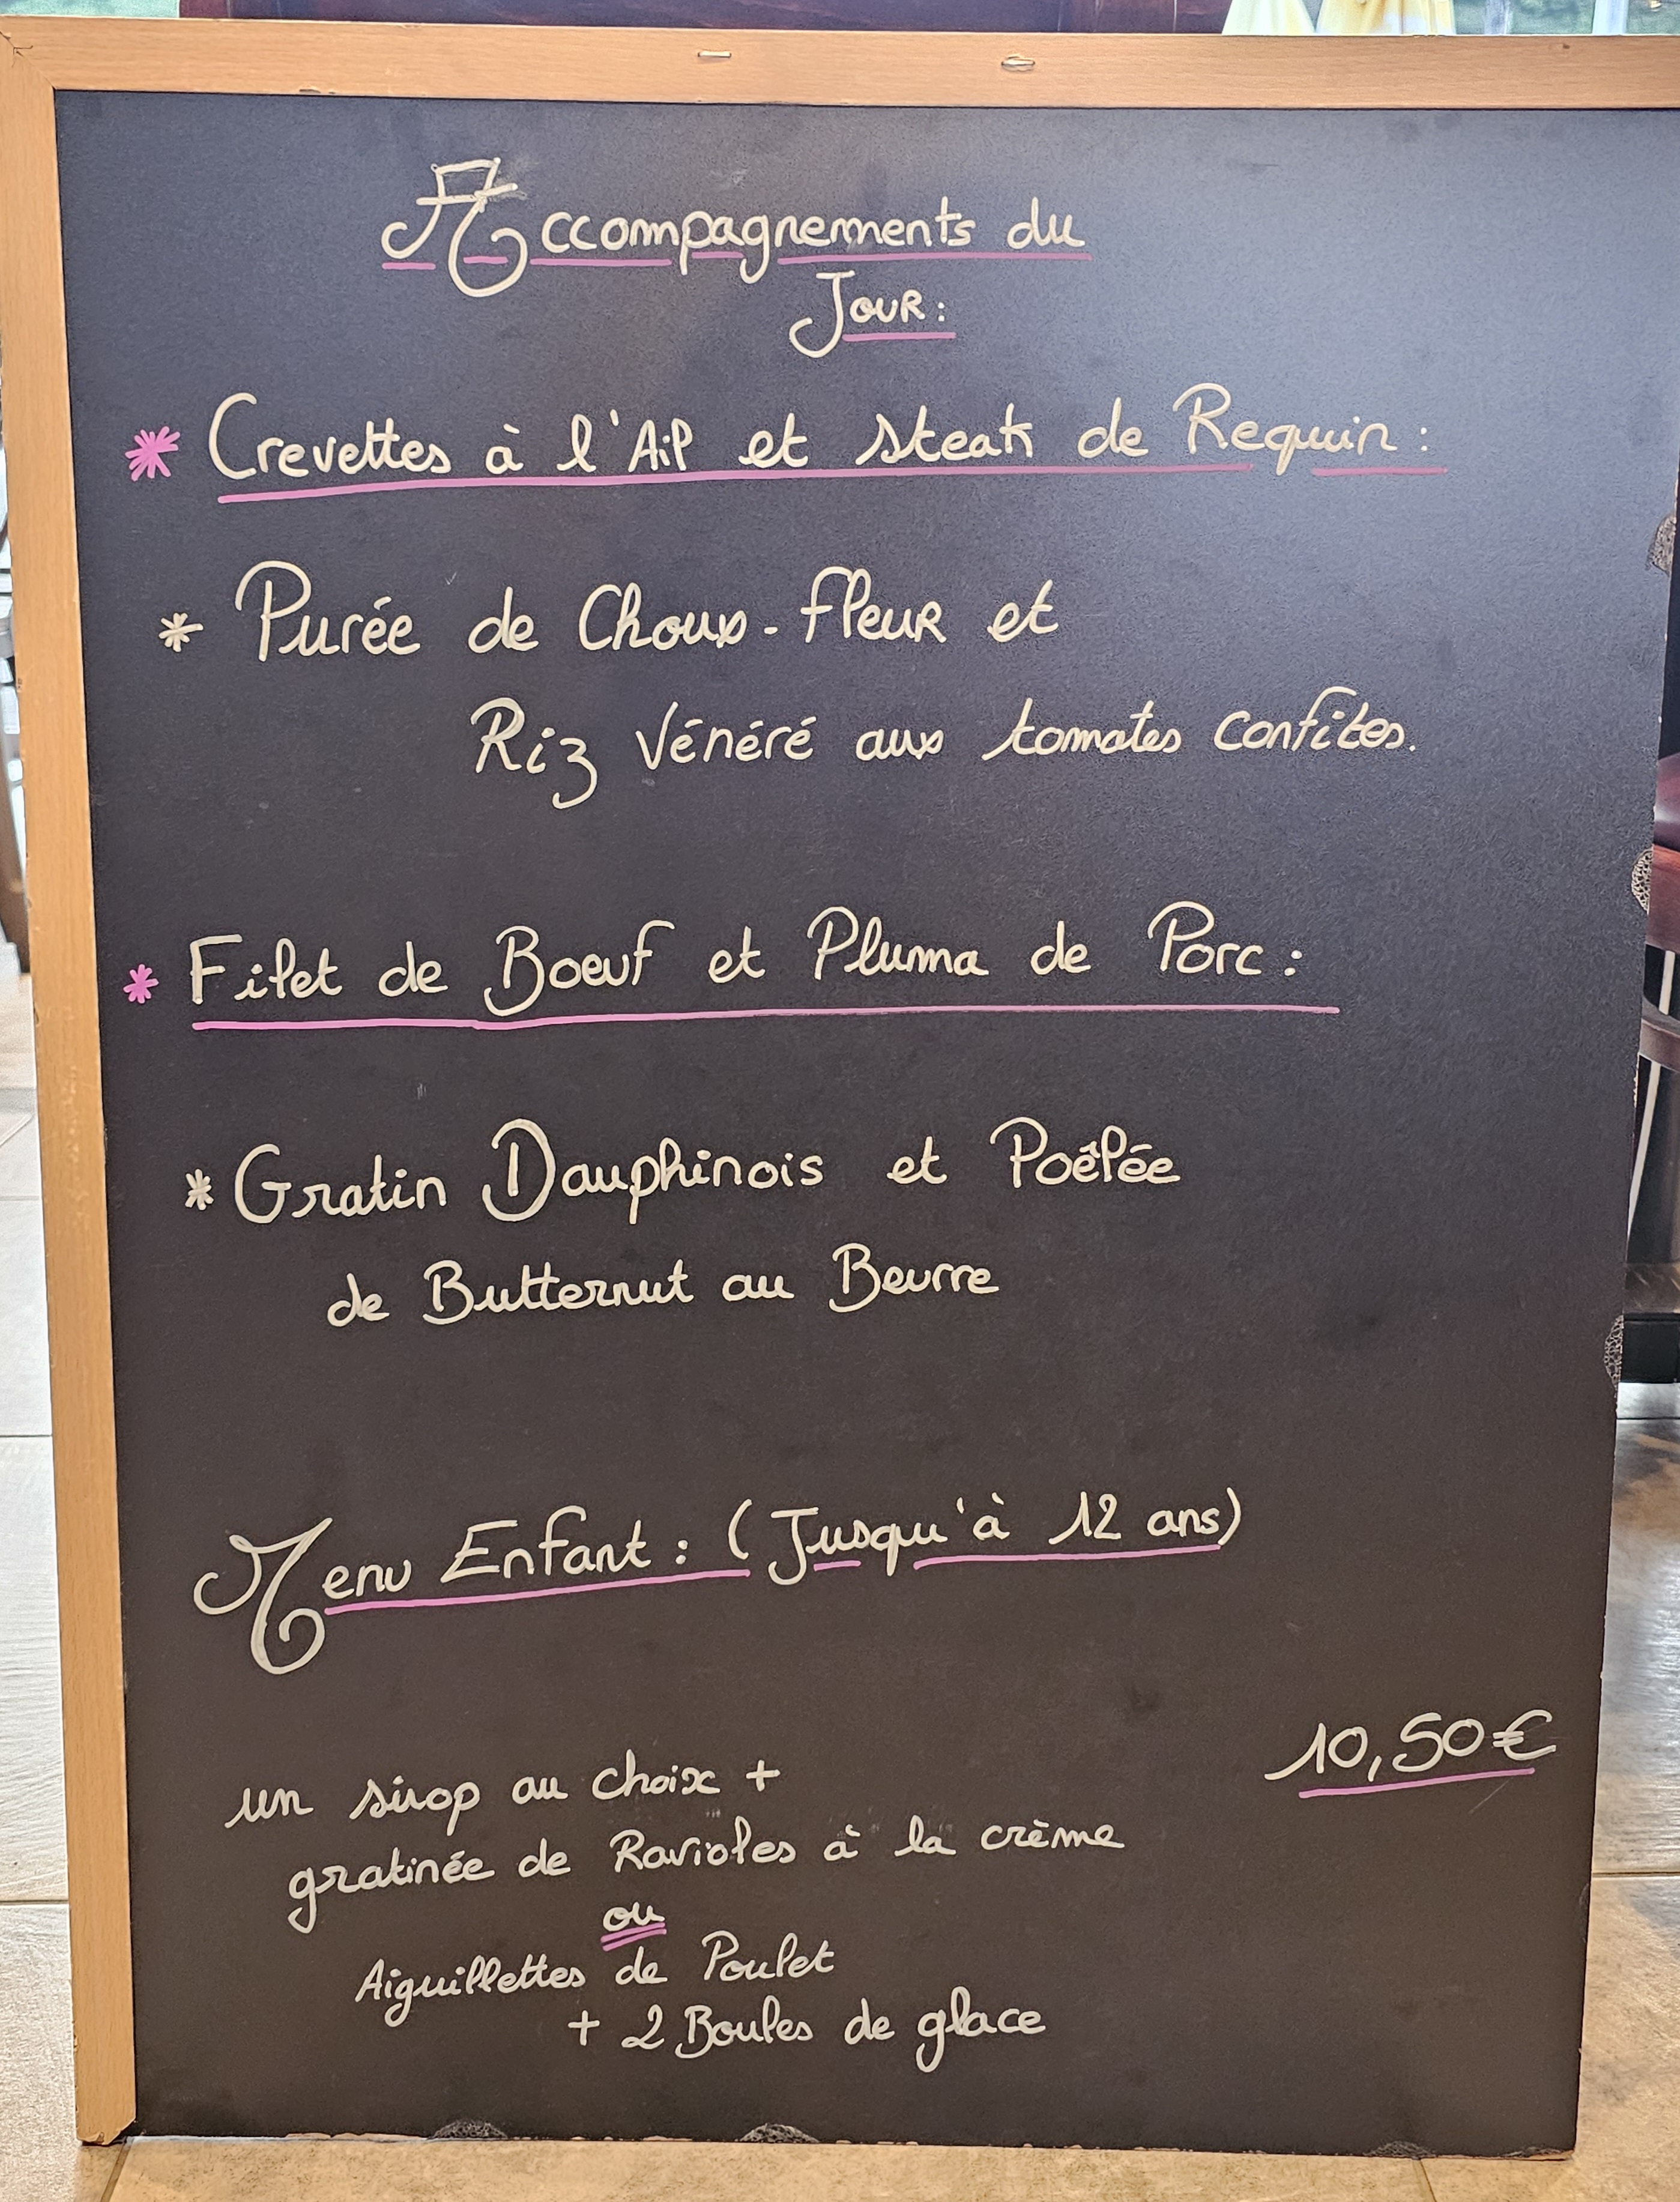 Accompagnements du
Jour :
* Crevettes à l'Ail et Steak de Requin :
* Purée de Choux-fleur et
Riz Vénéré aux tomates confites.
* Filet de Boeuf et Pluma de Porc :
* Gratin Dauphinois et Poêlée
de Butternut au Beurre
Menu Enfant : (Jusqu'à 12 ans)
10,50€
un sirop au choix +
gratinée de Ravioles à la crème
ou
Aiguillettes de Poulet
+ 2 Boules de glace